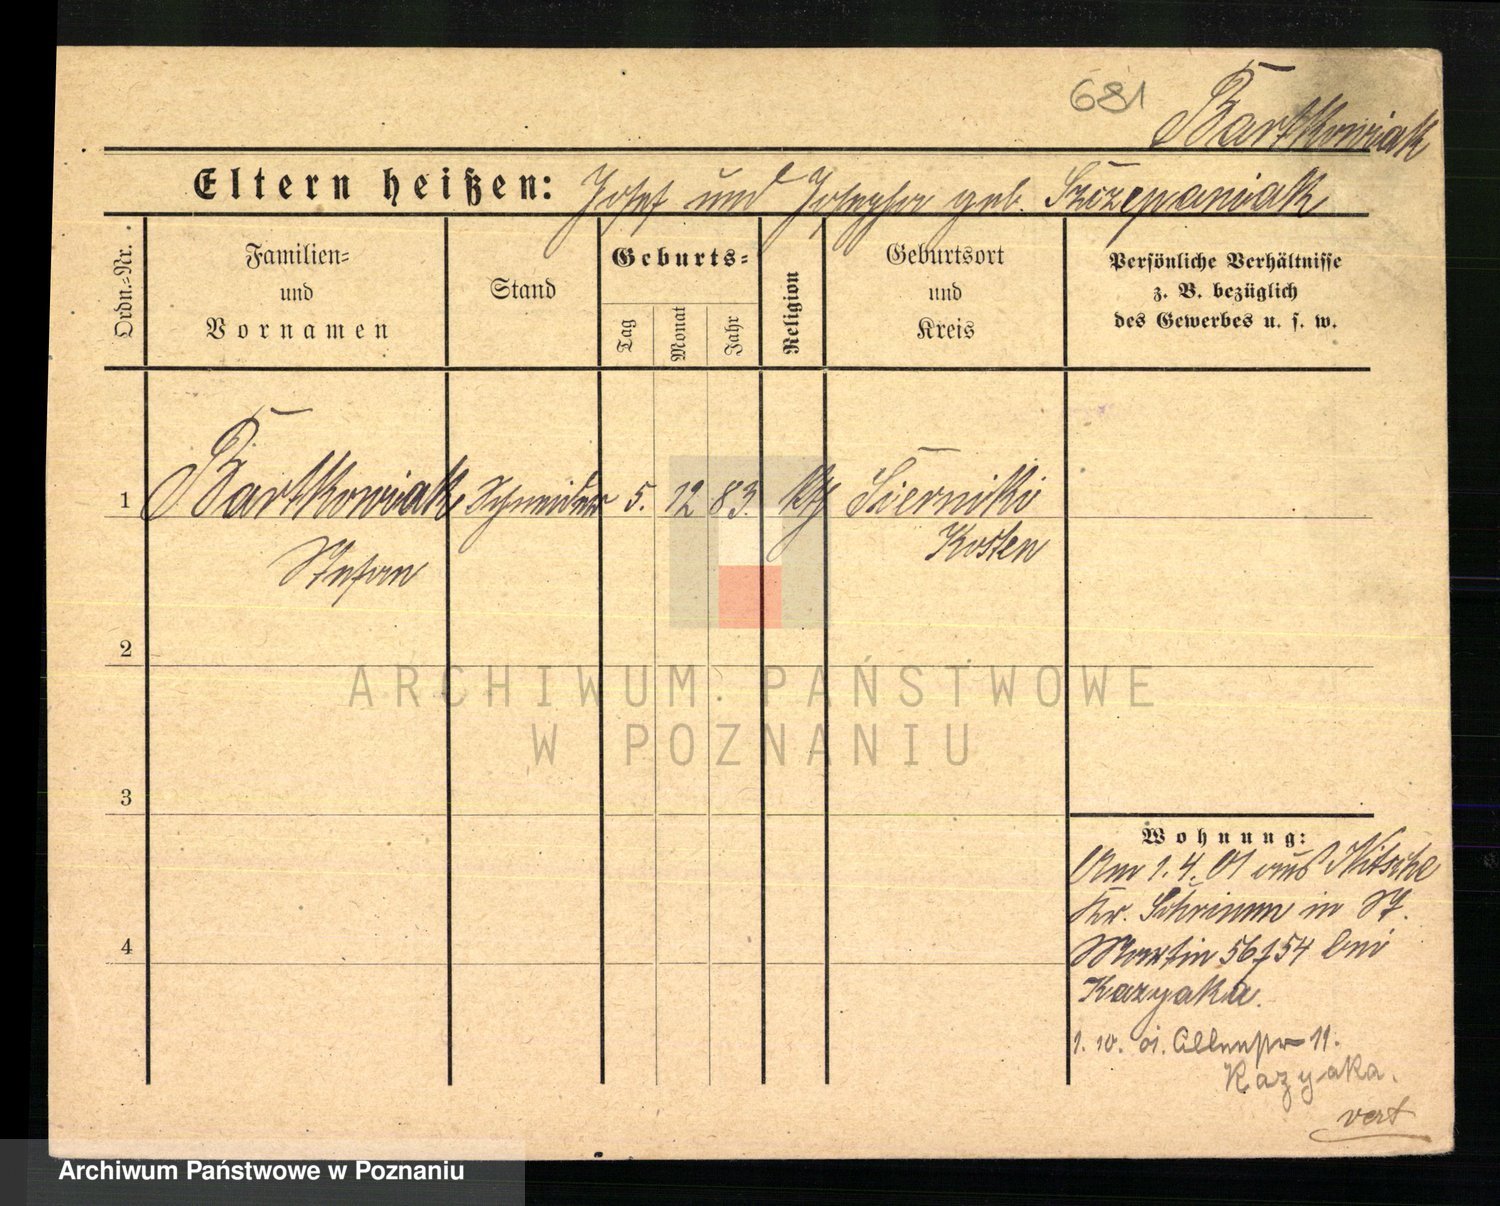 681
Bartkowiak
Eltern heißen: Josef und Josepha geb. Szczepaniak
Ordn.-Nr.
Familien-
und
Vornamen
Stand
Geburts-
Tag
Monat
Jahr
Religion
Geburtsort
und
Kreis
Persönliche Verhältnisse
z. B. bezüglich
des Gewerbes u. s. w.
1 Bartkowiak Schneider 5. 12 83. kth Sierniki
Stefan Kosten
2
3
4
Wohnung:
Am 1.4.01 aus Nitsche
Kr. Schrimm in St.
Martin 56/54 bei
Kazyaka.
1. 10. 01. 11.
Kazyaka.
vert
ARCHIWUM PAŃSTWOWE
W POZNANIU
Archiwum Państwowe w Poznaniu